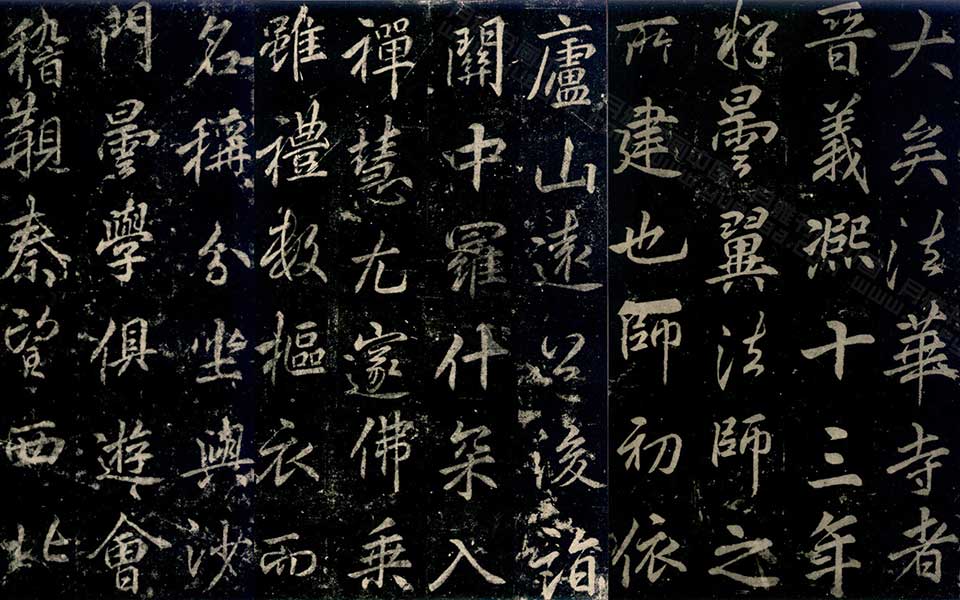 大矣法華寺者
晋義熙十三年
釋曇翼法師之
所建也師初依
廬山遠公後詣
關中羅什架入
禪慧尤邃佛乗
雖禮數摳衣而
名稱分坐與沙
門曇學俱遊會
稽觀秦望西北